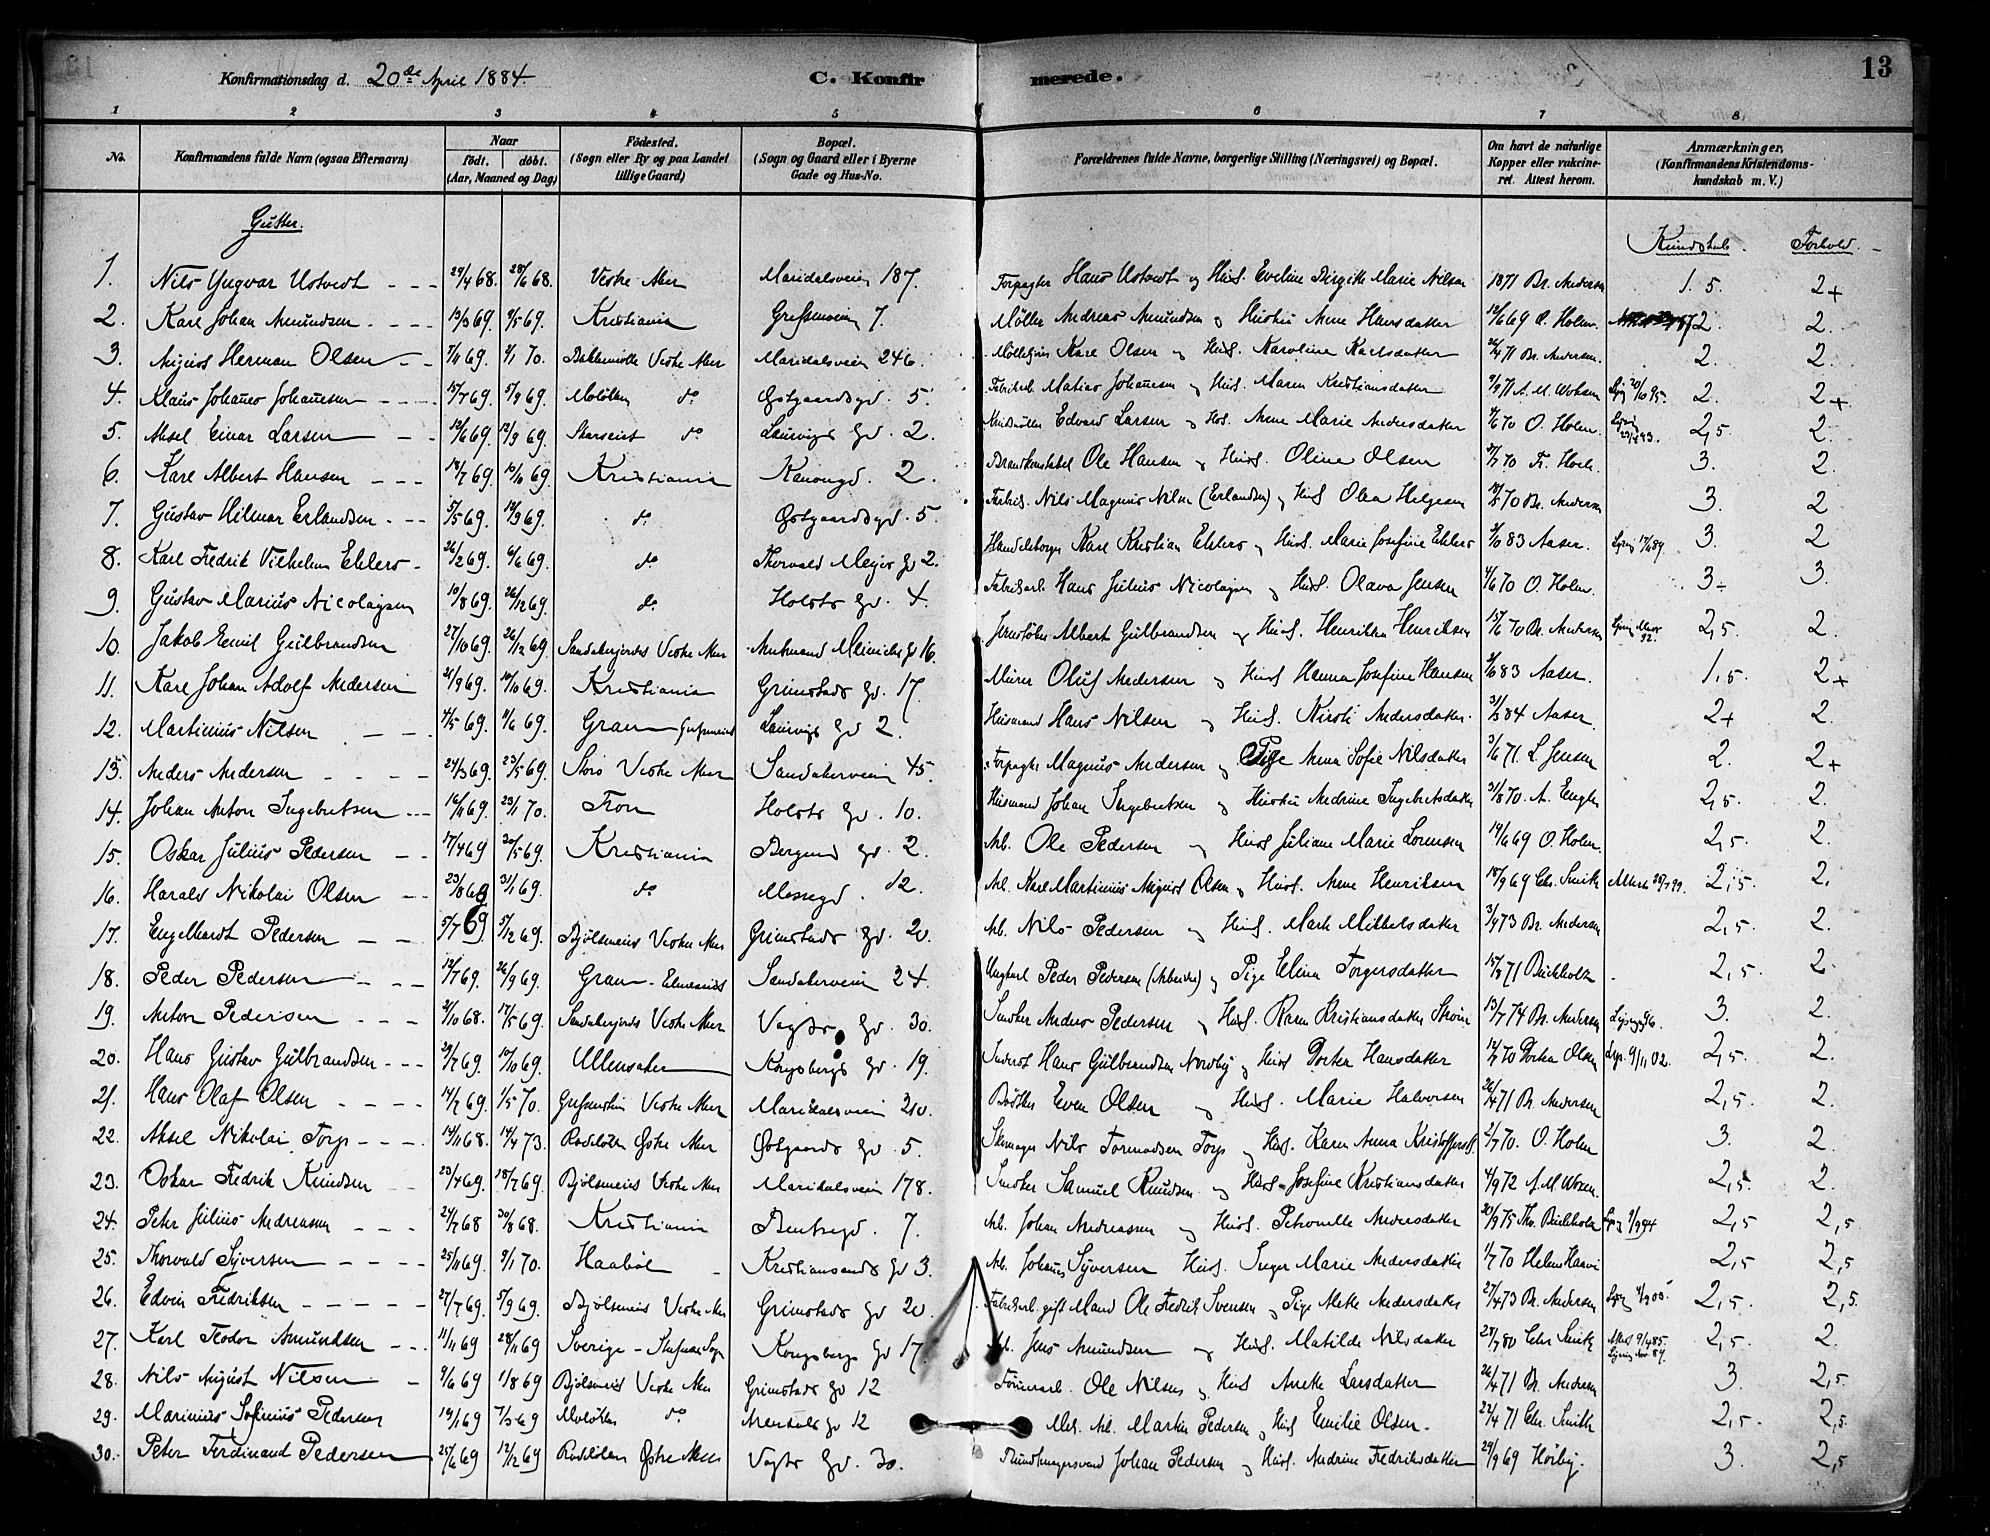 Konfirmationsdag d. 20de April 1884.
C. Konfirmerede.
13
1 2 3 4 5 6 7 8
No. Konfirmandens fulde Navn (ogsaa Efternavn) Naar født. døbt. (Aar, Maaned og Dag) Fødested. (Sogn eller By og paa Landet tillige Gaard) Bopæl. (Sogn og Gaard eller i Byerne Gade og Hus-No. Forældrenes fulde Navne, borgerlige Stilling (Næringsvei) og Bopæl. Om havt de naturlige Kopper eller vaccineret. Attest herom. Anmærkninger, (Konfirmandens Kristendomskundskab m. V.)
Gutter. Kundskab. Forhold.
1. Nils Yngvar Ustvedt 29/4 68. 28/6 68. Vestre Aker Maridalsveien 187. Forpagter Hans Ustvedt og Hust. Eveline Birgitte Marie Nilsen 1871 Br. Andersen 1.5. 2+
2. Karl Johan Amundsen 13/3 69. 9/5 69. Kristiania Grefsenveien 7. Møller Andreas Amundsen og Hustru Anne Hansdatter 12/6 69 O. Holm. 2. 2.
3. August Herman Olsen 7/11 69. 9/1 70. Bakkemølle Vestre Aker Maridalsveien 246. Karl Olsen og Hust. Karoline Karlsdatter 26/4 71 Br. Andersen. 2. 2.
4. Klaus Johannes Johannesen 15/7 69. 5/9 69. Moløkken do Østgaardsgd. 5. Fabrikarb. Matias Johannesen og Hust. Maren Kristiansdatter 9/9 71 A. M. 2. 2+
5. Aksel Einar Larsen 12/6 69. 12/9 69. do Laurvigs Gd. 2. Edvard Larsen og Hus. Anne Marie Andersdatter 4/6 70 O. Holm. 2,5. 2.
6. Karl Albert Hansen 18/7 69. 10/10 69. Kristiania Kanongd. 2. Brandkonstabel Ole Hansen og Hust. Oline Olsen 70 Fr. Hoch. 3. 2.
7. Gustav Hilmar Erlandsen 5/5 69. 19/9 69. do Østgaardsgd. 5. Nils Magnus Nilsen (Erlandsen) og Hust Olea Helgesen 70 Br. Andersen 3. 2
8. Karl Fredrik Vilhelm Ehlers 26/2 69. 6/6 69. do Thorvald Meyers Gd 2. Handelsborger Karl Kristian Ehlers og Hust. Marie Josefine Ehlers 83 Aaser. 3. 2
9. Gustav Marius Nicolaysen 10/8 69. 26/12 69. do Holsts Gd. 4. Fabrikarb. Hans Julius Nicolaysen og Hust. Olava Jensen 4/6 70 O. Holm. 3÷ 3.
10. Jakob Emil Gulbrandsen 27/10 69. 26/12 69. Sandakerjordet Vestre Aker Amtmand Meinichs Gd 16. Albert Gulbrandsen og Hust. Henrikke Henriksen 15/6 70 Br. Andersen 2,5. 2.
11. Karl Johan Adolf Andersen 21/9 69. 10/10 69. Kristiania Grimstads Gd. 17. Murer Oluf Andersen og Hust Hanna Josefine Hansen 83 Aaser. 1,5. 2+
12. Martinius Nilsen 4/5 69. 6/6 69. Gran Laurvigs Gd 2. Husmand Hans Nilsen og Hust. Kirsti Andersdatter. 84 Aaser 2+ 2.
13. Anders Andersen 24/3 69. 23/5 69. Vestre Aker Sandakerveien 45. Forpagter Magnus Andersen og Pige Anna Sofie Nilsdatter 3/6 71. L Jensen 2. 2+
14. Johan Anton Ingebretsen 16/11 69. 23/1 70. Tron Holsts Gd. 10. Husmand Johan Ingebretsen og Hustru Andrine Ingebretsdatter 31/8 70. A. 2,5. 2.
15. Oskar Julius Pedersen 17/4 69 30/5 69. Kristiania Bergens Gd. 2. Arb. Ole Pedersen og Hust Juliane Marie Lorensen 14/6 69 O. Holm. 2,5 2.
16. Harald Nikolai Olsen 23/8 68 31/1 69. do Mossegd. 12. Arb. Karl Martinius August Olsen og Hust. Anne Henriksen 18/9 69 Chr. Smith 2,5. 2.
17. Engelhardt Pedersen 5/7 69. 5/12 69. Bjølseneie Vestre Aker Grimstads Gd. 20. Arb. Nils Pedersen og Hust. Marte Mikkelsdatter 3/9 73 Br. Andersen 2,5. 2.
18. Peder Pedersen 12/7 69. 26/9 69. Gran Sandakerveien 24. Ungkarl Peder Pedersen (Arbeider) og Pige Elina Torgersdatter 71 Buchholz 2,5. 2.
19. Anton Pedersen 21/10 68. 17/5 69. Sandakerjordet Vestre Aker Vogts Gd. 30. Snedker Anders Pedersen og Hust. Karen Kristiansdatter 13/7 74 Br. Andersen 3. 2.
20. Hans Gustav Gulbrandsen 29/7 69. 10/10 69. Ullensaker Kongsbergs Gd. 19. Hans Gulbrandsen Nordby og Hust Dorthea Hansdatter 70 Dorthea Olsen 9/11 02. 2,5. 2.
21. Hans Olaf Olsen 14/7 69. 1/5 70. Vestre Aker Maridalsveien 210. Bødker Even Olsen og Hust. Marie Halvorsen 26/4 71 Br. Andersen 2,5. 2.
22. Aksel Nikolai Torp 14/11 68. 14/4 73. Rodeløkken Østre Aker Østgaards Gd. 5. Nils Tormodsen Torp og Hust. Karen Anna Kristoffersd. 2/7 70. O. Holm 3. 2.
23. Oskar Fredrik Knudsen 23/4 69. 18/7 69. Bjølseneie Vestre Aker Maridalsveien 178. Snedker Samuel Knudsen og Hust. Josefine Kristiansdatter 4/9 72 A. M. 2,5. 2.
24. Peter Julius Andreassen 24/7 68 30/8 68. Kristiania Bentsegd. 7. Arb. Johan Andreassen og Hust. Petronelle Andersdatter 20/9 75 Th. Buchholz 2,5 2,5.
25. Thorvald Syversen 25/11 69. 9/1 70. Haabøl Kristiansands Gd 3. Arb. Johannes Syversen Hust. Inger Marie Andersdatter 1/7 70 Helene 2,5 2,5
26. Edvin Fredriksen 27/7 69. 5/9 69. Bjølseneie Vestre Aker Grimstads Gd 20. Fabrikarb. gift Mand Ole Fredrik Svensen og Pige Mette Andersdatter 27/4 73 Br. Andersen 2,5. 2,5.
27. Karl Teodor Amundsen 11/11 69 28/11 69 Sverige Kongsbergs Gd 17. Arb. Jens Amundsen og Hust. Matilde Nilsdatter 28/7 80 Chr Smith 2,5. 2.
28. Nils August Nilsen 9/6 69 1/8 69 Bjølseneie Vestre Aker Grimstads Gd 12 Ole Nilsen og Hust Anette Larsdatter 26/4 71 Br. Andersen 3. 2,5.
29. Marinius Sofinius Pedersen 19/1 69 7/3 69 Moløkken do Arendals Gd 12 Arb. Martin Pedersen og Hust Emilie Olsen. 22/4 71 Chr. Smith 2,5. 2,5.
30. Peter Ferdinand Pedersen 25/6 69 12/12 69 Rodeløkken Østre Aker Vogts Gd. 30. Johan Pedersen og Hust. Andrine Fredriksdatter 29/9 69 Høiby. 3. 2,5